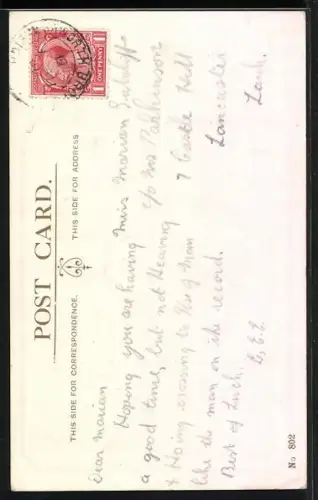 POST CARD.
THIS SIDE FOR CORRESPONDENCE.
THIS SIDE FOR ADDRESS
Dear Marian
Hoping you are having
a good time, but not Hearing
& Hoing crossing to Isle of Man
like the man on the record.
Best of Luck.
Miss Marian
c/o Mrs Parkinson
7 Castle Hill
Lancaster
Lanc.
ONE PENNY
No 892